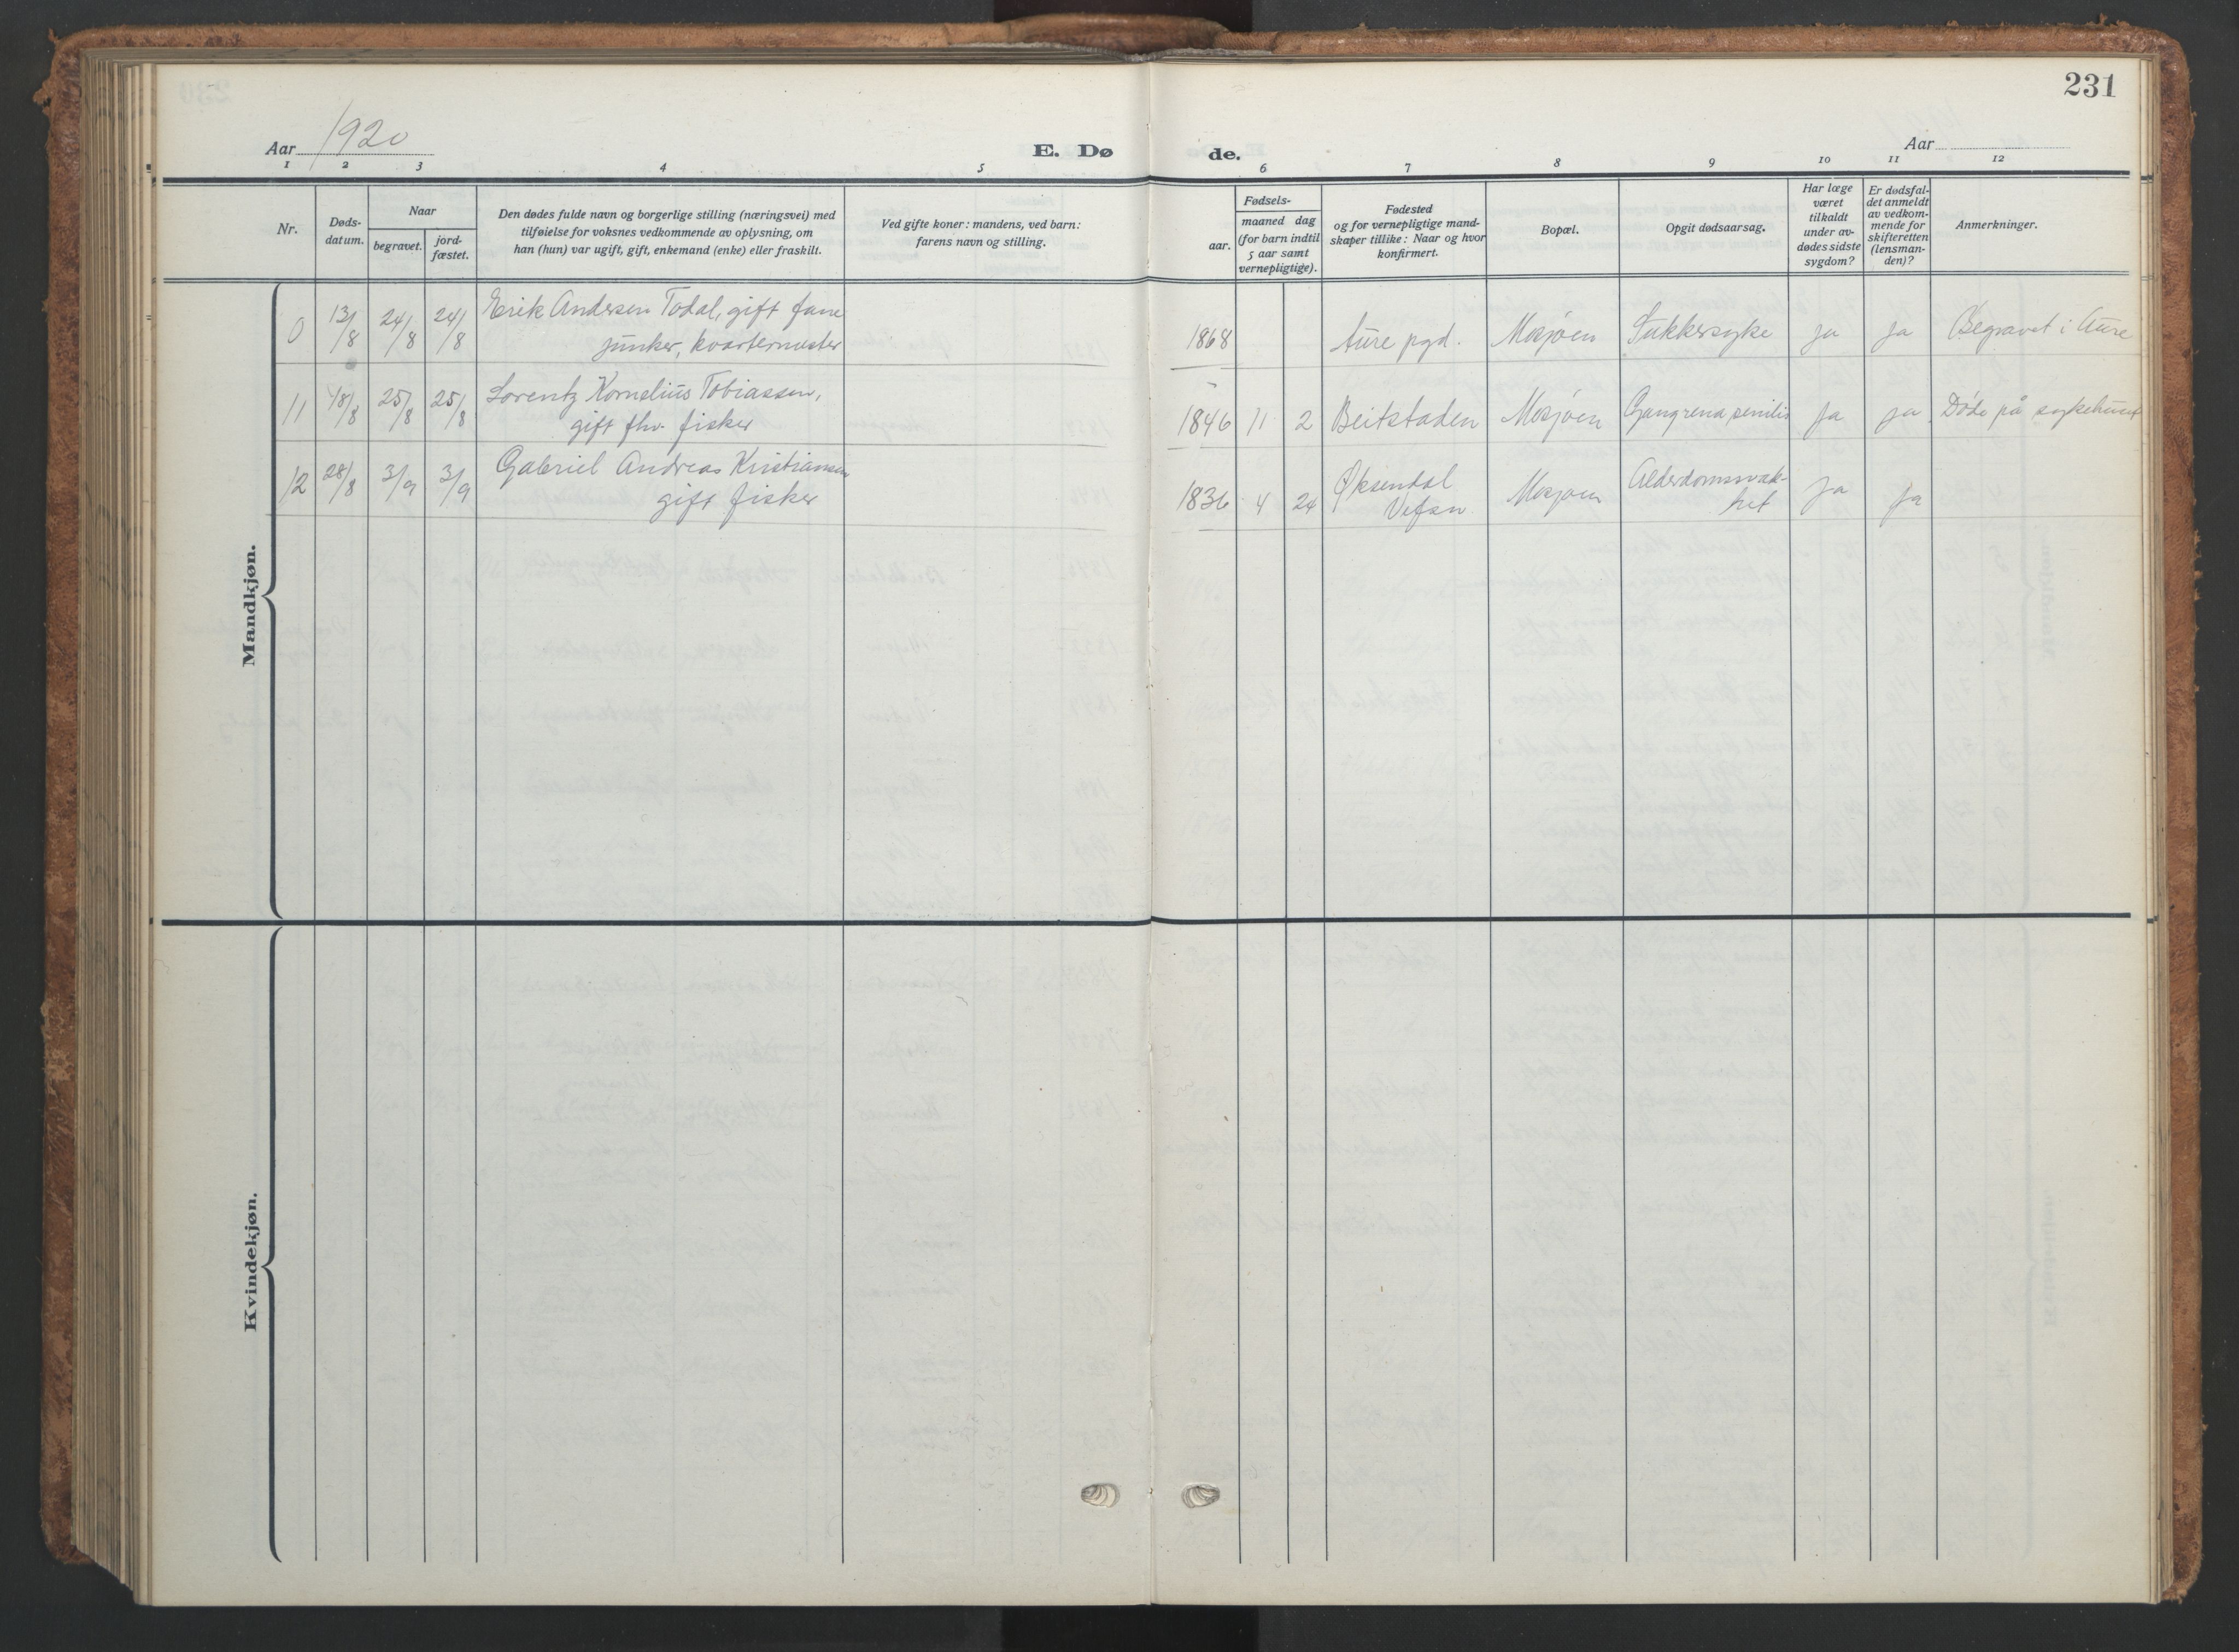 231
Aar 1920
E. Døde.
Aar
1 2 3 4 5 6 7 8 9 10 11 12
Nr.
Døds-
datum.
Naar
begravet.
jord-
fæstet.
Den dødes fulde navn og borgerlige stilling (næringsvei) med
tilføielse for voksnes vedkommende av oplysning, om
han (hun) var ugift, gift, enkemand (enke) eller fraskilt.
Ved gifte koner: mandens, ved barn:
farens navn og stilling.
Fødsels-
aar.
maaned dag
(for barn indtil
5 aar samt
vernepligtige).
Fødested
og for vernepligtige mand-
skaper tillike: Naar og hvor
konfirmert.
Bopæl.
Opgit dødsaarsag.
Har læge
været
tilkaldt
under av-
dødes sidste
sygdom?
Er dødsfal-
det anmeldt
av vedkom-
mende for
skifteretten
(lensman-
den)?
Anmerkninger.
Mandkjøn.
0 13/8 24/8 24/8 Erik Andersen Todal, gift fane
junker, kvartermester 1868 Aure pgd. Mosjøen Sukkersyke ja ja Begravet i Aure
11 18/8 25/8 25/8 Lorentz Kornelius Tobiassen,
gift fhv. fisker 1846 11 2 Beitstaden Mosjøen Gangrena senilis ja ja Døde på sykehuset
12 28/8 3/9 3/9 Gabriel Andreas Kristiansen
gift fisker 1836 4 24 Øksendal
Vefsn Mosjøen Alderdomssvak-
het ja ja
Kvindekjøn.